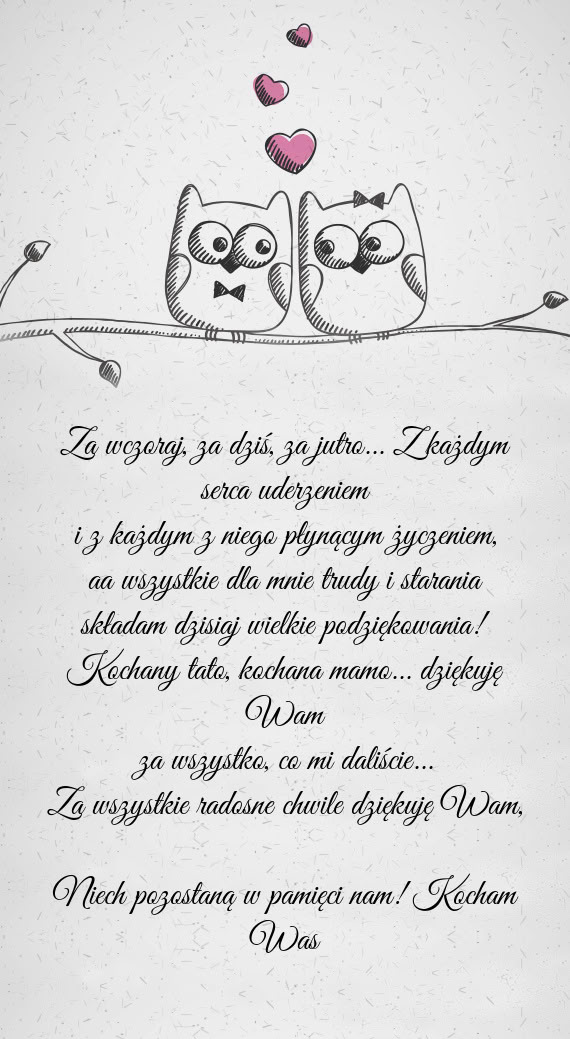 Za wczoraj, za dziś, za jutro... Z każdym
serca uderzeniem
i z każdym z niego płynącym życzeniem,
aa wszystkie dla mnie trudy i starania
składam dzisiaj wielkie podziękowania!
Kochany tato, kochana mamo... dziękuję
Wam
za wszystko, co mi daliście...
Za wszystkie radosne chwile dziękuję Wam,
Niech pozostaną w pamięci nam! Kocham
Was